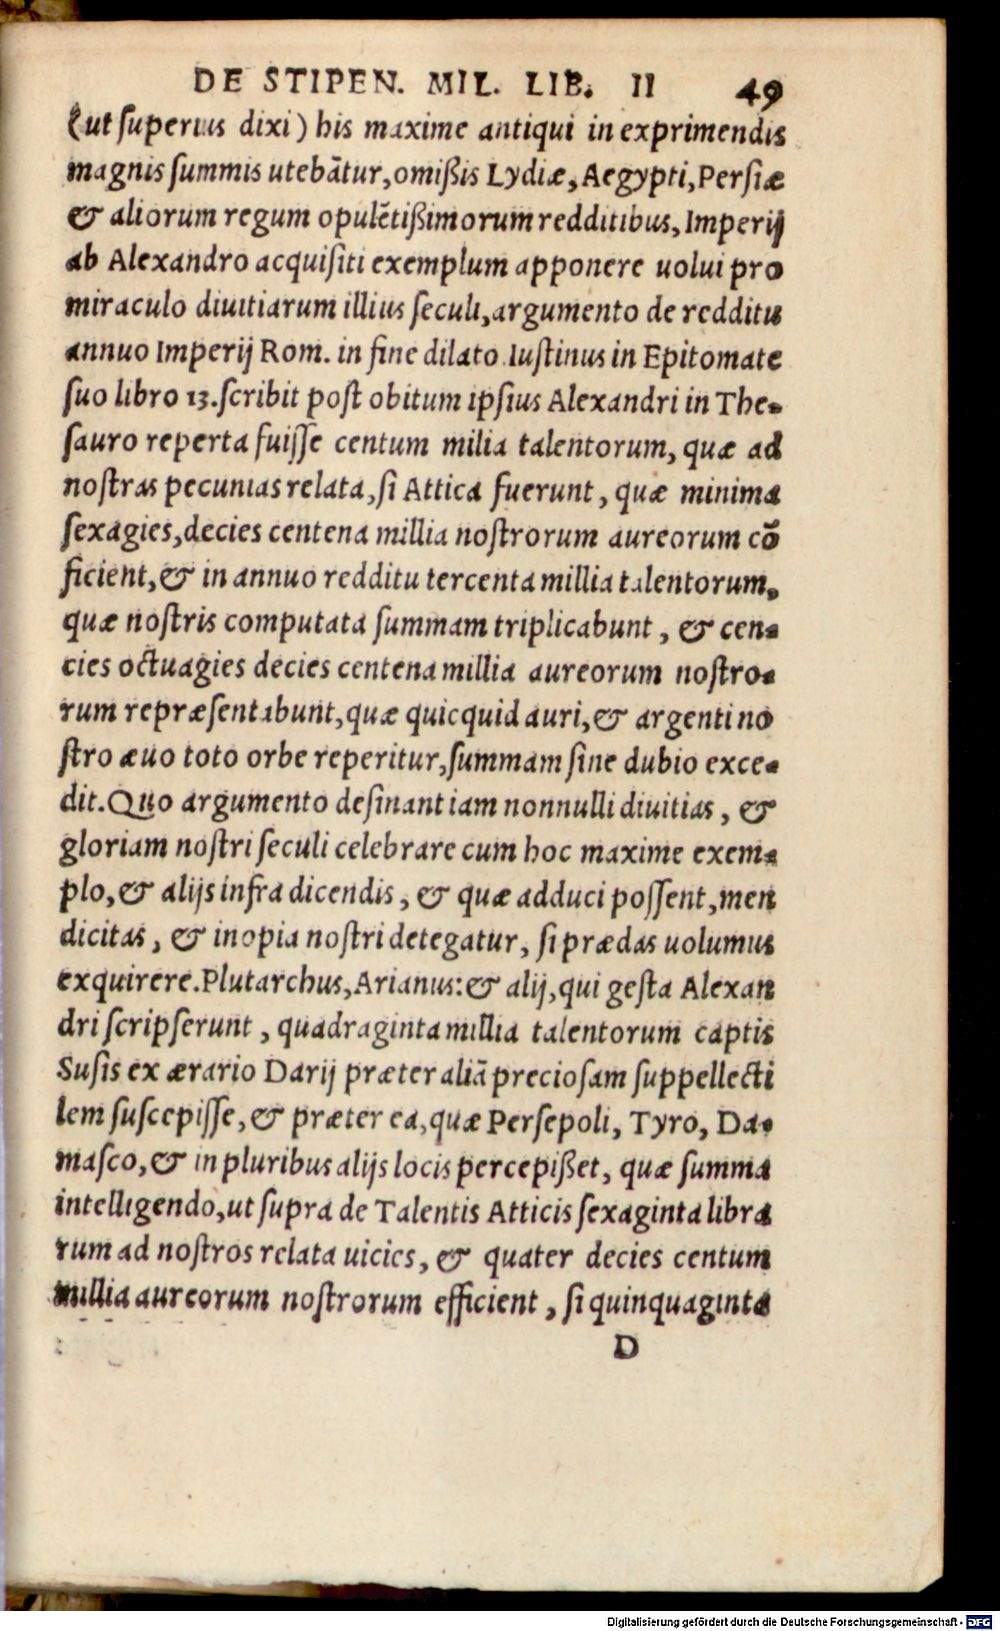 DE STIPEN. MIL. LIB. II 49
(ut superius dixi) his maxime antiqui in exprimendis
magnis summis utebātur, omißis Lydiæ, Aegypti, Persiæ
& aliorum regum opulētißimorum redditibus, Imperij
ab Alexandro acquisiti exemplum apponere uolui pro
miraculo diuitiarum illius seculi, argumento de redditu
annuo Imperij Rom. in fine dilato. Iustinus in Epitomate
suo libro 13. scribit post obitum ipsius Alexandri in The-
sauro reperta fuisse centum milia talentorum, quæ ad
nostras pecunias relata, si Attica fuerunt, quæ minima
sexagies, decies centena millia nostrorum aureorum cō
ficient, & in annuo redditu tercenta millia talentorum.
quæ nostris computata summam triplicabunt, & cen-
cies octuagies decies centena millia aureorum nostro-
rum repræsentabunt, quæ quicquid auri, & argenti no
stro æuo toto orbe reperitur, summam sine dubio exce-
dit. Quo argumento desinant iam nonnulli diuitias, &
gloriam nostri seculi celebrare cum hoc maxime exem-
plo, & alijs infra dicendis, & quæ adduci possent, men
dicitas, & inopia nostri detegatur, si prædas uolumus
exquirere. Plutarchus, Arianus: & alij, qui gesta Alexan
dri scripserunt, quadraginta millia talentorum captis
Susis ex ærario Darij præter aliā preciosam suppellecti
lem suscepisse, & præter ea, quæ Persepoli, Tyro, Da-
masco, & in pluribus alijs locis percepißet, quæ summa
intelligendo, ut supra de Talentis Atticis sexaginta libra
rum ad nostros relata uicies, & quater decies centum
millia aureorum nostrorum efficient, si quinquaginta
D
Digitalisierung gefördert durch die Deutsche Forschungsgemeinschaft - DFG